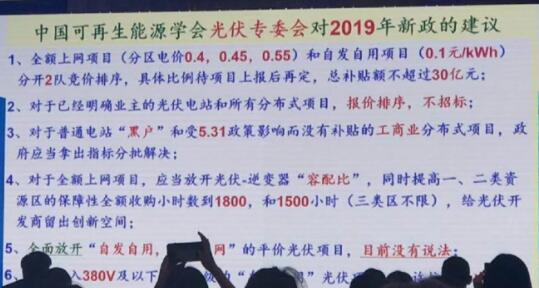 中国可再生能源学会光伏专委会对2019年新政的建议
1、全额上网项目（分区电价0.4，0.45，0.55）和自发自用项目（0.1元/kWh）
分开2队竞价排序，具体比例待项目上报后再定，总补贴额不超过30亿元；
2、对于已经明确业主的光伏电站和所有分布式项目，报价排序，不招标；
3、对于普通电站“黑户”和受5.31政策影响而没有补贴的工商业分布式项目，政
府应当拿出指标分批解决；
4、对于全额上网项目，应当放开光伏-逆变器“容配比”，同时提高一、二类资
源区的保障性全额收购小时数到1800，和1500小时（三类区不限），给光伏开
发商留出创新空间；
5、全面放开“自发自用，网”的平价光伏项目，目前没有说法；
6、入380V及以下 光伏